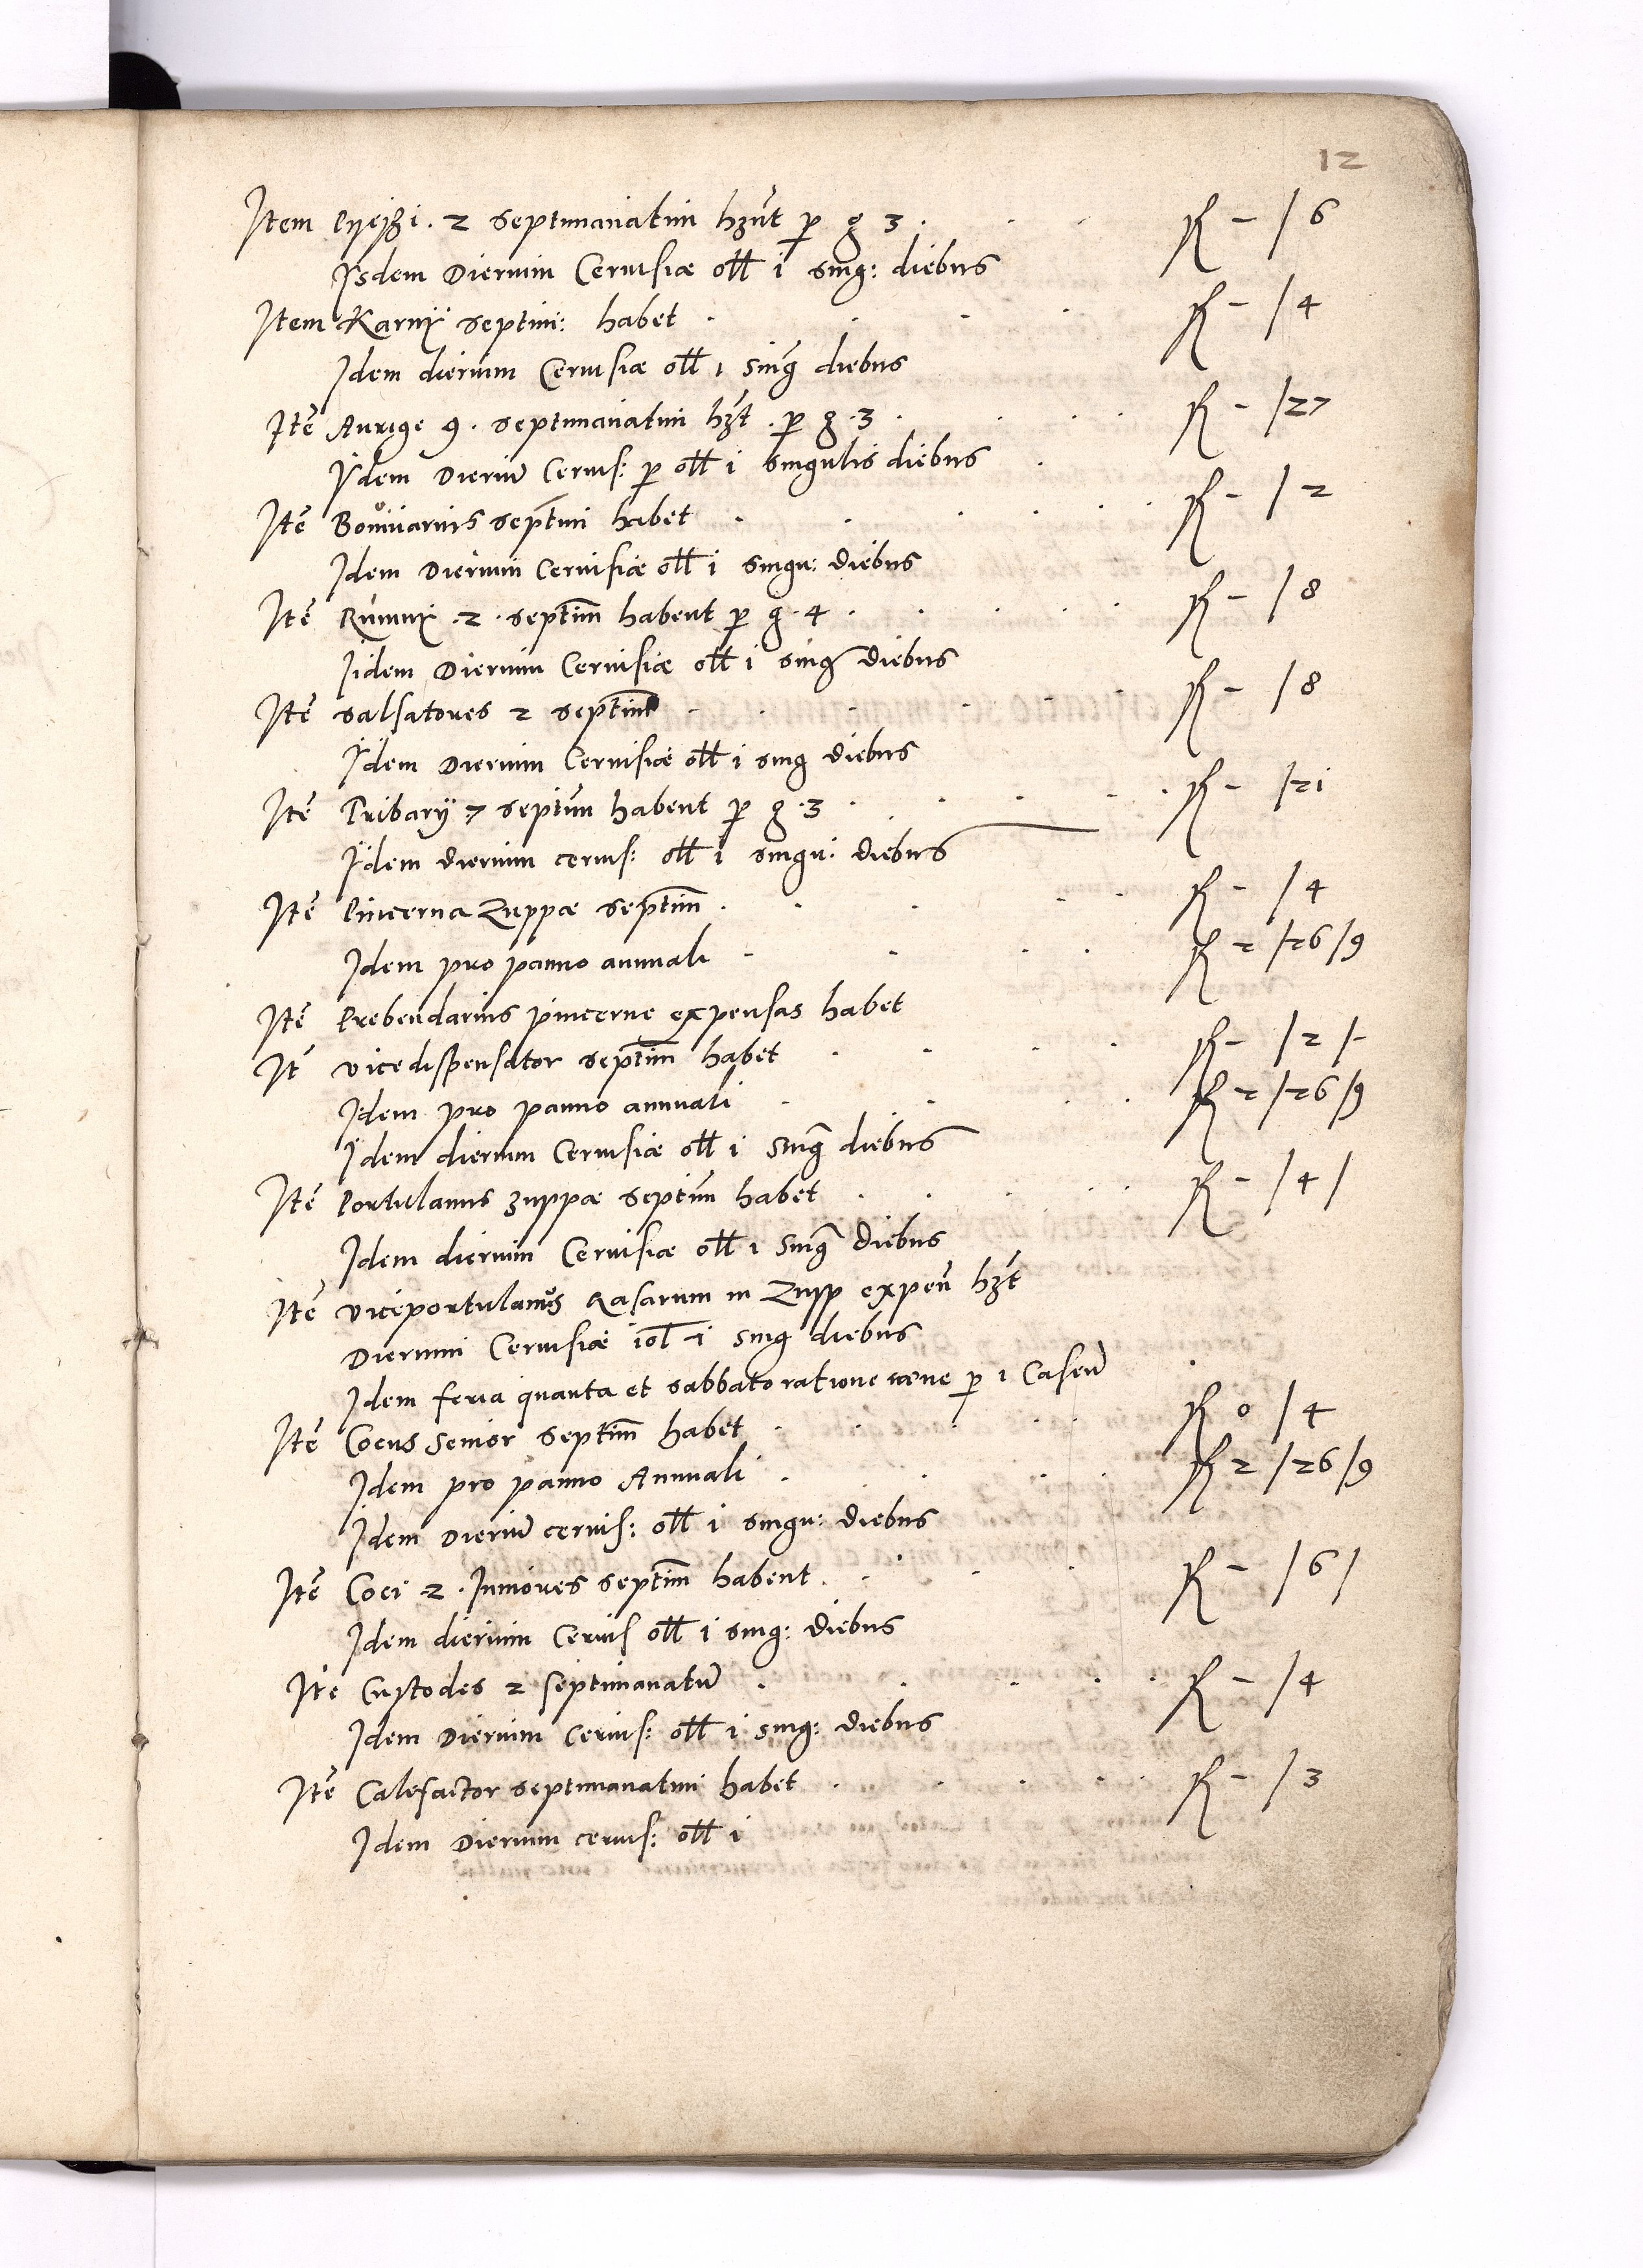 12
Item Pyeszi . 2 septimanatim hzūt ꝑ g 3 . . . R – / 6
Iisdem Diervim Cervisiæ oll i sing: diebus
Item Karnÿ septim: habet . . . . R – / 4
Idem diervim Cervisiæ oll 1 Sing diebus
Itē Aurige 9 . septimanatim hz̄t . ꝑ g . 3 . . . . R – / 27
Iidem Diervim̄ Cervis: ꝑ oll i singulis diebus .
Itē septim habet . . . . . . R – / 2
Idem Diervim Cervisiæ oll i singu: diebus
Itē . 2 . septim̄ habent ꝑ g . 4 . . . . . R – / 8
Iidem Diervim Cervisiæ oll i sing diebus
Itē salsatores 2 septim . . . . . R – / 8
Iidem Diervim Cervisiæ oll i sing diebus
Itē Tribarÿ 7 septim̄ habent ꝑ g . 3 . . . . . R – / 21
Iidem diervim cervis: oll i singu: diebus
Itē Pincerna Zuppæ septim̄ . . . . . R – / 4
Idem pro panno annuali . . . . R 2 / 26 / 9
Itē Prebendarius pincerne expensas habet
It̄ vicedispensator septim̄ habet . . . . R – / 2 / –
Idem pro panno annuali . . . . R 2 / 26 / 9
Idem diervim Cervisiæ oll i Sing diebus
Itē Portulanus zuppæ septim̄ habet . . . . . R – / 4 /
Idem diervim Cervisiæ oll 1 Sing diebus
Itē viceportulanus Rasarum in Zupp expen̄ hz̄t
Diervim Cervisiæ i ol i sing diebus
Idem feria quarta et sabbato ratione cæne ꝑ 1 Caseū
Itē Cocus Senior septim̄ habet . . . . R 0 / 4
Idem pro panno Annuali . . . . R 2 / 26 / 9
Idem Diervim̄ cervis: oll i singu: diebus
Itē Coci 2 . Iuniores septim̄ habent . . . . R – / 6 /
Idem diervim Cervis oll i sing: diebus
Itē Custodes 2 septimanatim̄ . . . . . R – / 4
Idem Diervim Cervis: oll i sing: diebus
Itē Calefactor septimanatim habet . . . . . R – / 3
Idem Diervim cervis: oll i